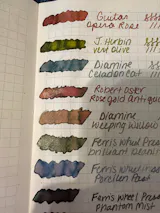 Guitar
Opera Rose
J. Herbin
Vert Olive
Diamine
Celadon Cat
Robert Oster
Rose Gold Antiqua
Diamine
Weeping Willow
Ferris Wheel Press
Ferris Wheel Press
Porcelain
Ferris Wheel Press
Phantom Mist